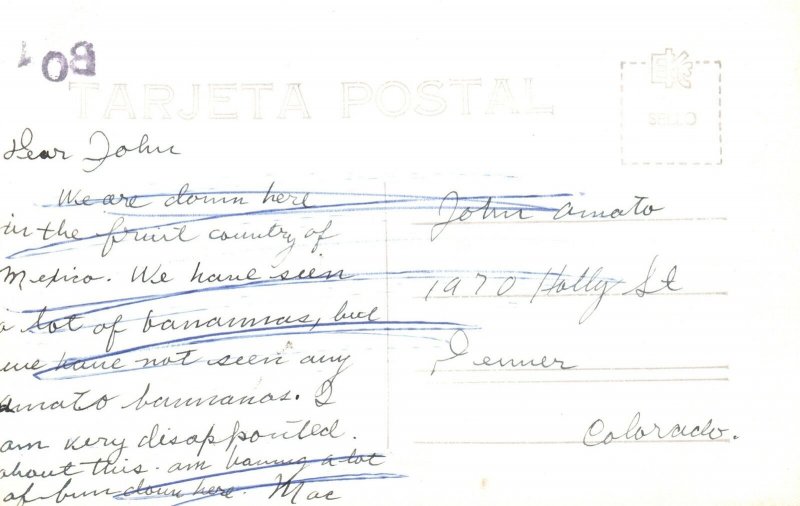 BO
TARJETA POSTAL
SELLO
Dear John
We are down here
in the fruit country of
Mexico. We have seen
a lot of banannas, but
we have not seen any
amato bannanas. I
am very disappointed.
about this. am having a lot
of fun down here. Mac
John Amato
1970 Holly St
Denver
Colorado.